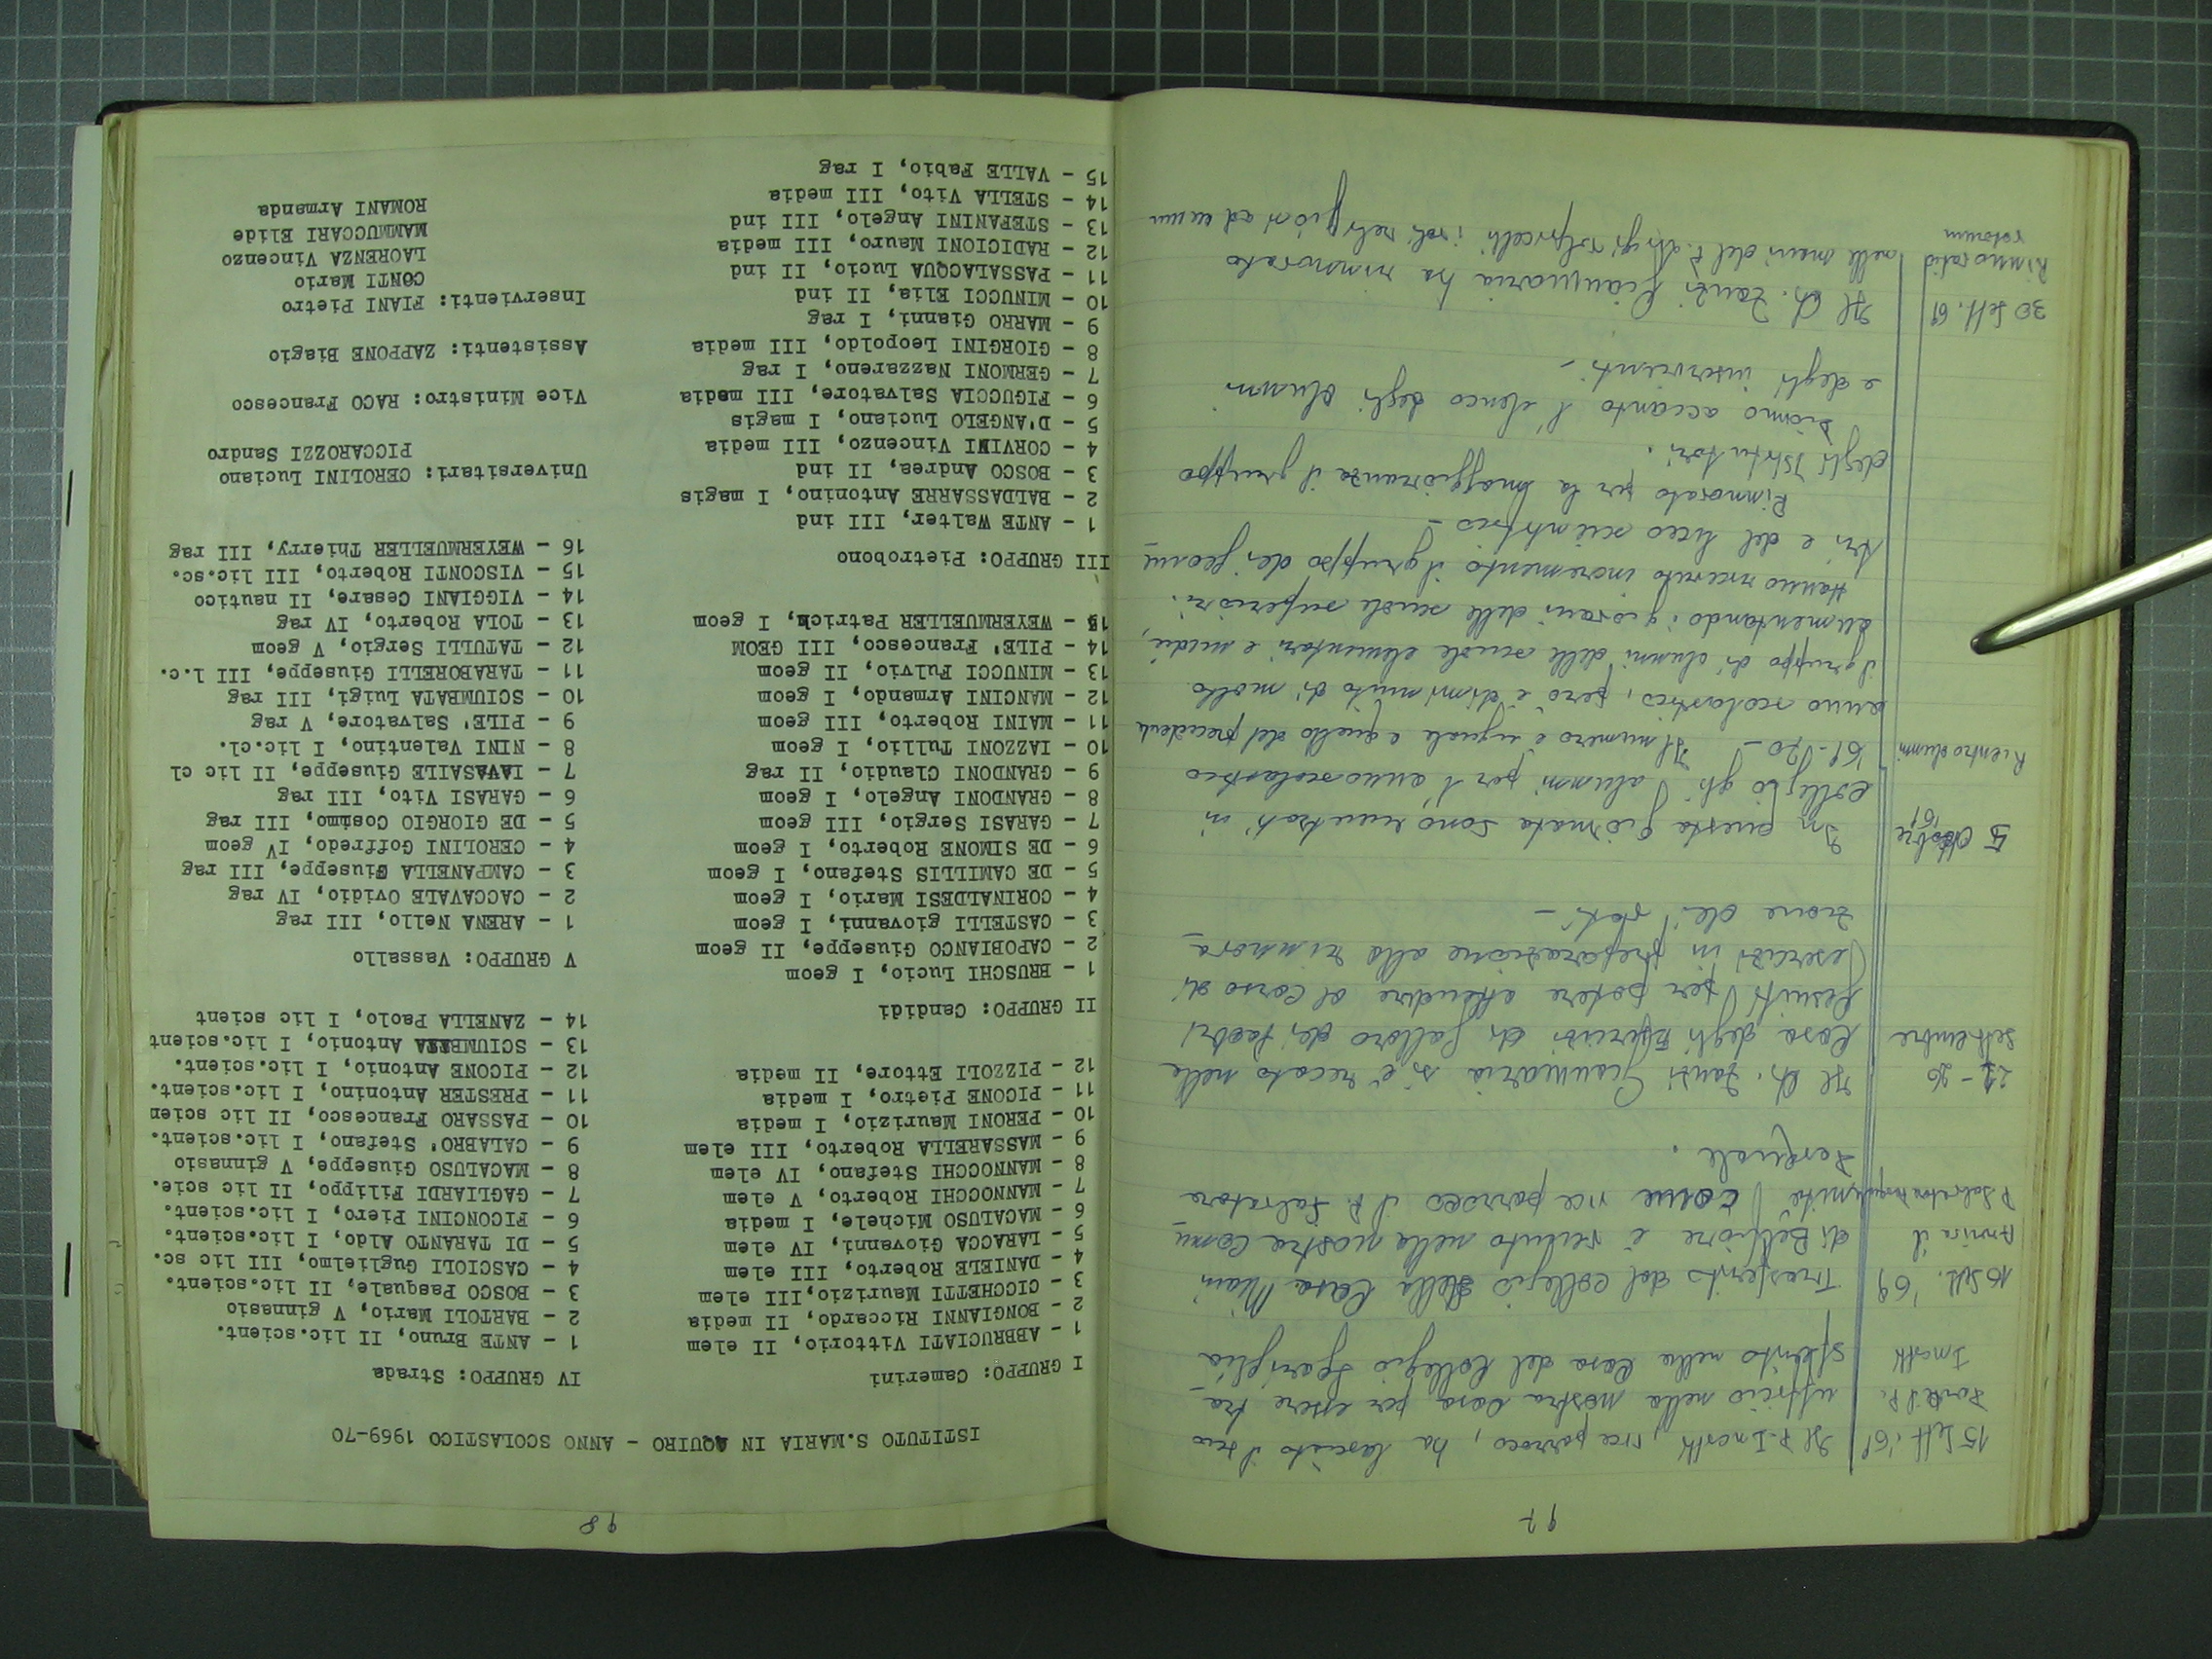 97
15 Sett. '69
Il P. Inestti, vice parroco, ha lasciato il suo
ufficio nella nostra Casa per essere tra-
sferito nella Casa del Collegio Gariglia
16 Sett. '69
Trasferito dal collegio della Casa Miani
Arriva il
di Belfiore è venuto nella nostra Comu
P. Salvatore
come vice parroco il P. Salvatore
Pasquale.
21 - 26
settembre
Il Ch. Zanzi Gianmaria si è recato nella
Casa degli Esercizi di Galloro dei padri
Gesuiti per potere attendere al corso di
esercizi in preparazione alla rinnova-
zione dei voti -
5 Ottobre
'69
In questa giornata sono rientrati in
collegio gli alunni per l'anno scolastico
Rientro alunni
'69-'70 - Il numero è uguale a quello del precedente
anno scolastico, però è diminuito di molto
il gruppo di alunni delle scuole elementari e medie,
aumentando i giovani delle scuole superiori.
Hanno ricevuto incremento il gruppo dei geome
tri e del liceo scientifico -
Rinnovato per la maggioranza il gruppo
degli Istitutori.
Diamo accanto l'elenco degli alunni
e degli inservienti -
30 Sett. 69
Il Ch. Zanzi Gianmaria ha rinnovato
nelle mani del P. i voti religiosi ad annum
98
ISTITUTO S.MARIA IN AQUIRO - ANNO SCOLASTICO 1969-70
I GRUPPO: Camerini
1 - ABBRUCIATI Vittorio, II elem
2 - BONGIANNI Riccardo, II media
3 - CICCHETTI Maurizio,III elem
4 - DANIELE Roberto, III elem
5 - LARACCA Giovanni, IV elem
6 - MACALUSO Michele, I media
7 - MANNOCCHI Roberto, V elem
8 - MANNOCCHI Stefano, IV elem
9 - MASSARELLA Roberto, III elem
10 - PERONI Maurizio, I media
11 - PICONE Pietro, I media
12 - PIZZOLI Ettore, II media
II GRUPPO: Candidi
1 - BRUSCHI Lucio, I geom
2 - CAPOBIANCO Giuseppe, II geom
3 - CASTELLI giovanni, I geom
4 - CORINALDESI Mario, I geom
5 - DE CAMILLIS Stefano, I geom
6 - DE SIMONE Roberto, I geom
7 - GARASI Sergio, III geom
8 - GRANDONI Angelo, I geom
9 - GRANDONI Claudio, II rag
10 - IAZZONI Tullio, I geom
11 - MAINI Roberto, III geom
12 - MANCINI Armando, I geom
13 - MINUCCI Fulvio, II geom
14 - PILE' Francesco, III GEOM
15 - WEYERMUELLER Patrick, I geom
III GRUPPO: Pietrobono
1 - ANTE Walter, III ind
2 - BALDASSARRE Antonino, I magis
3 - BOSCO Andrea, II ind
4 - CORVINI Vincenzo, III media
5 - D'ANGELO Luciano, I magis
6 - FIGUCCIA Salvatore, III media
7 - GERMONI Nazzareno, I rag
8 - GIORGINI Leopoldo, III media
9 - MARRO Gianni, I rag
10 - MINUCCI Elia, II ind
11 - PASSALACQUA Lucio, II ind
12 - RADICIONI Mauro, III media
13 - STEFANINI Angelo, III ind
14 - STELLA Vito, III media
15 - VALLE Fabio, I rag
IV GRUPPO: Strada
1 - ANTE Bruno, II lic.scient.
2 - BARTOLI Mario, V ginnasio
3 - BOSCO Pasquale, II lic.scient.
4 - CASCIOLI Guglielmo, III lic sc.
5 - DI TARANTO Aldo, I lic.scient.
6 - FICONCINI Piero, I lic.scient.
7 - GAGLIARDI Filippo, II lic scie.
8 - MACALUSO Giuseppe, V ginnasio
9 - CALABRO' Stefano, I lic.scient.
10 - PASSARO Francesco, II lic scien
11 - PRESTER Antonino, I lic.scient.
12 - PICONE Antonio, I lic.scient.
13 - SCIUMBATA Antonio, I lic.scient
14 - ZANELLA Paolo, I lic scient
V GRUPPO: Vassallo
1 - ARENA Nello, III rag
2 - CACCAVALE Ovidio, IV rag
3 - CAMPANELLA Giuseppe, III rag
4 - CEROLINI Goffredo, IV geom
5 - DE GIORGIO Cosimo, III rag
6 - GARASI Vito, III rag
7 - LAVASAILE Giuseppe, II lic cl
8 - NINI Valentino, I lic.cl.
9 - PILE' Salvatore, V rag
10 - SCIUMBATA Luigi, III rag
11 - TARABORELLI Giuseppe, III l.c.
12 - TATULLI Sergio, V geom
13 - TOLA Roberto, IV rag
14 - VIGGIANI Cesare, II nautico
15 - VISCONTI Roberto, III lic.sc.
16 - WEYERMUELLER Thierry, III rag
Universitari: CEROLINI Luciano
PICCAROZZI Sandro
Vice Ministro: RACO Francesco
Assistenti: ZAPPONE Biagio
Inservienti: FIANI Pietro
CONTI Mario
LAORENZA Vincenzo
MAMMUCCARI Elide
ROMANI Armanda